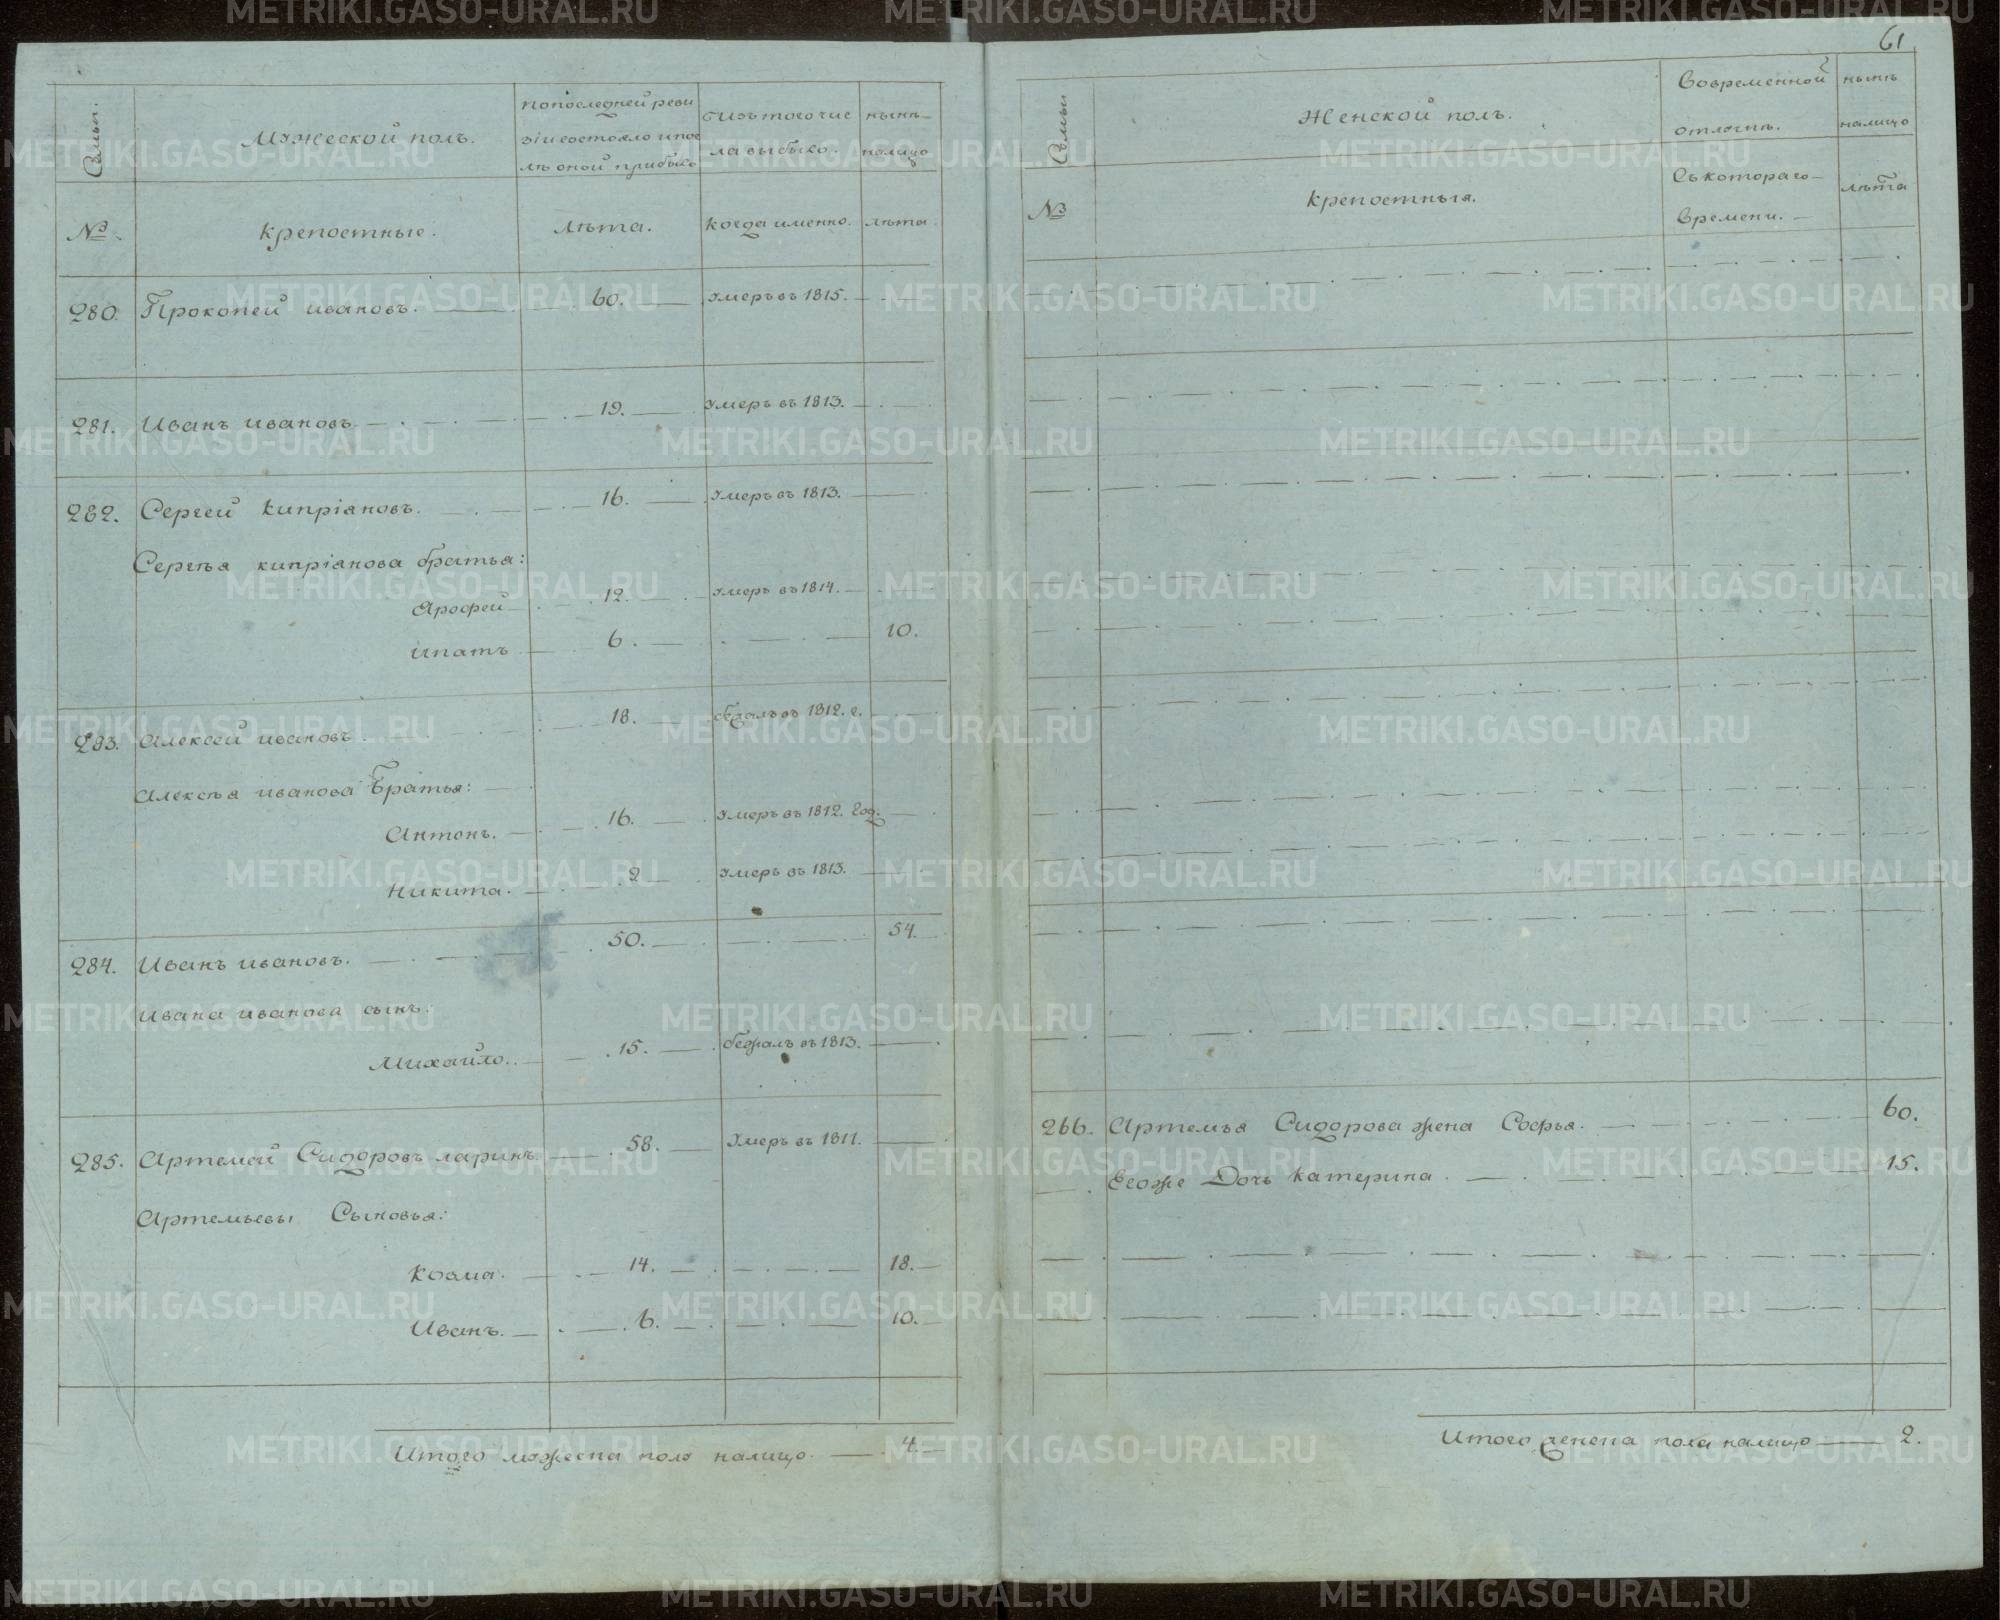 61
Семьи.
Мужеской полъ.
Попоследней реви
зіи состояло ипос
лѣ оной прибыло
Бизъ того чис
ла выбыло.
нынѣ
налицо
№
крепостные.
лѣта.
когда именно.
лѣта
280. Прокопей ивановъ. 60. умеръ въ 1815.
281. Иванъ ивановъ 19. умеръ въ 1813.
282. Сергей кипріановъ. 16. умеръ въ 1813.
Сергѣя кипріанова братья:
Ярофей 12. умеръ въ 1814.
ипатъ 6. 10.
283. Алексей ивановъ 18. бежалъ въ 1812. г.
Алексѣя иванова братья:
Антонъ. 16. умеръ въ 1812. год.
никита. 2 умеръ въ 1813.
284. Иванъ ивановъ. 50. 54.
Ивана иванова сынъ:
Михайло. 15. бежалъ въ 1813.
285. Артемей Сидоровъ ларинъ 58. умеръ въ 1811.
Артемьевы Сыновья:
Козма. 14. 18.
Иванъ. 6. 10.
Итого мужеска пола налицо. 4.
Семьи
Женской полъ.
Вовременной
отлочкѣ.
нынѣ
налицо
№
крепостныя.
Съкотораго
времени.
лѣта
266. Артемья Сидорова жена Софья. 60.
Егоже Дочь катерина. 15.
Итого женска пола налицо 2.
METRIKI.GASO-URAL.RU